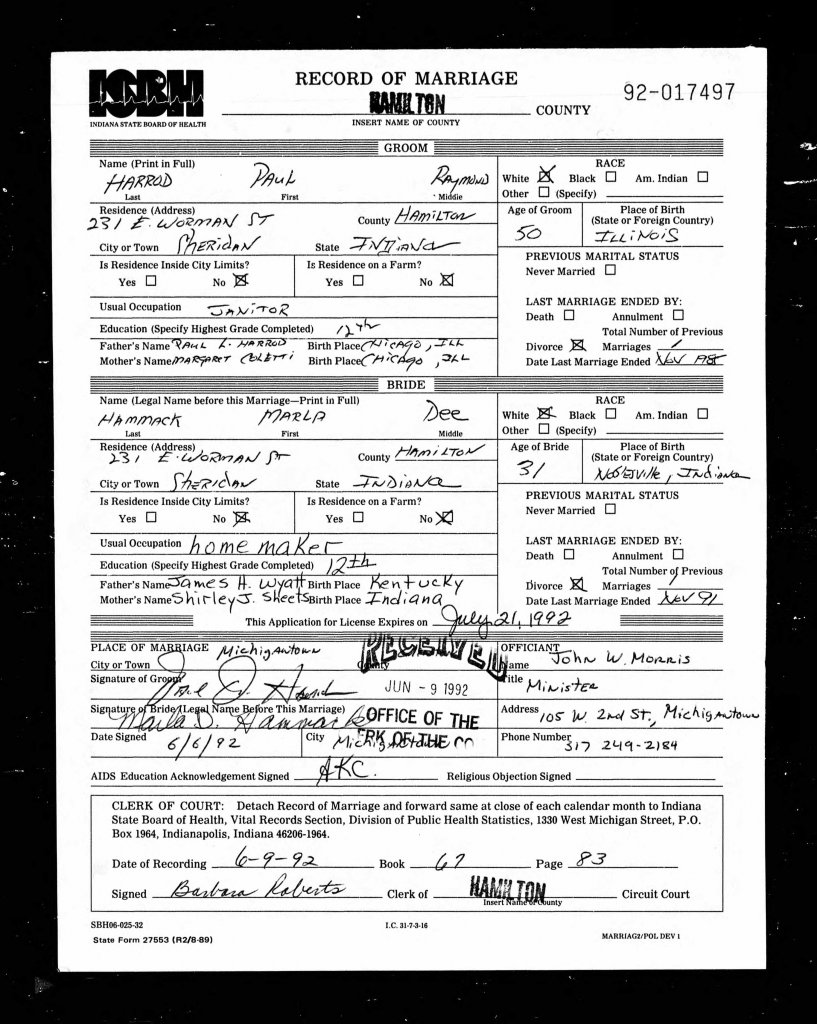 ISBH
INDIANA STATE BOARD OF HEALTH
RECORD OF MARRIAGE
HAMILTON COUNTY
INSERT NAME OF COUNTY
92-017497
GROOM
Name (Print in Full)
HARROD PAUL RAYMOND
Last First Middle
RACE
White ☒ Black ☐ Am. Indian ☐
Other ☐ (Specify)
Residence (Address)
231 E. WORMAN ST County HAMILTON
City or Town SHERIDAN State INDIANA
Age of Groom
50
Place of Birth
(State or Foreign Country)
ILLINOIS
Is Residence Inside City Limits?
Yes ☐ No ☒
Is Residence on a Farm?
Yes ☐ No ☒
PREVIOUS MARITAL STATUS
Never Married ☐
Usual Occupation JANITOR
Education (Specify Highest Grade Completed) 12th
Father's Name PAUL L. HARROD Birth Place CHICAGO, ILL
Mother's Name MARGARET COLETTI Birth Place CHICAGO, ILL
LAST MARRIAGE ENDED BY:
Death ☐ Annulment ☐
Total Number of Previous
Divorce ☒ Marriages 1
Date Last Marriage Ended NOV
BRIDE
Name (Legal Name before this Marriage—Print in Full)
HAMMACK MARLA Dee
Last First Middle
RACE
White ☒ Black ☐ Am. Indian ☐
Other ☐ (Specify)
Residence (Address)
231 E. WORMAN ST County HAMILTON
City or Town SHERIDAN State INDIANA
Age of Bride
31
Place of Birth
(State or Foreign Country)
Noblesville, Indiana
Is Residence Inside City Limits?
Yes ☐ No ☒
Is Residence on a Farm?
Yes ☐ No ☒
PREVIOUS MARITAL STATUS
Never Married ☐
Usual Occupation home maker
Education (Specify Highest Grade Completed) 12th
Father's Name James H. Wyatt Birth Place Kentucky
Mother's Name Shirley J. Sheets Birth Place Indiana
LAST MARRIAGE ENDED BY:
Death ☐ Annulment ☐
Total Number of Previous
Divorce ☒ Marriages 1
Date Last Marriage Ended NOV 91
This Application for License Expires on July 21, 1992
PLACE OF MARRIAGE Michigantown
City or Town County
RECEIVED
JUN - 9 1992
OFFICE OF THE
Signature of Groom
Signature of Bride (Legal Name Before This Marriage)
Marla D. Hammack
Date Signed 6/6/92 City Michigantown
OFFICIANT
Name John W. Morris
Title Minister
Address 105 W. 2nd St., Michigantown
Phone Number 317 249-2184
AIDS Education Acknowledgement Signed AKC. Religious Objection Signed
CLERK OF COURT: Detach Record of Marriage and forward same at close of each calendar month to Indiana
State Board of Health, Vital Records Section, Division of Public Health Statistics, 1330 West Michigan Street, P.O.
Box 1964, Indianapolis, Indiana 46206-1964.
Date of Recording 6-9-92 Book 67 Page 83
Signed Barbara Roberts Clerk of HAMILTON Circuit Court
Insert Name of County
SBH06-025-32
State Form 27553 (R2/8-89)
I.C. 31-7-3-16
MARRIAG2/POL DEV 1